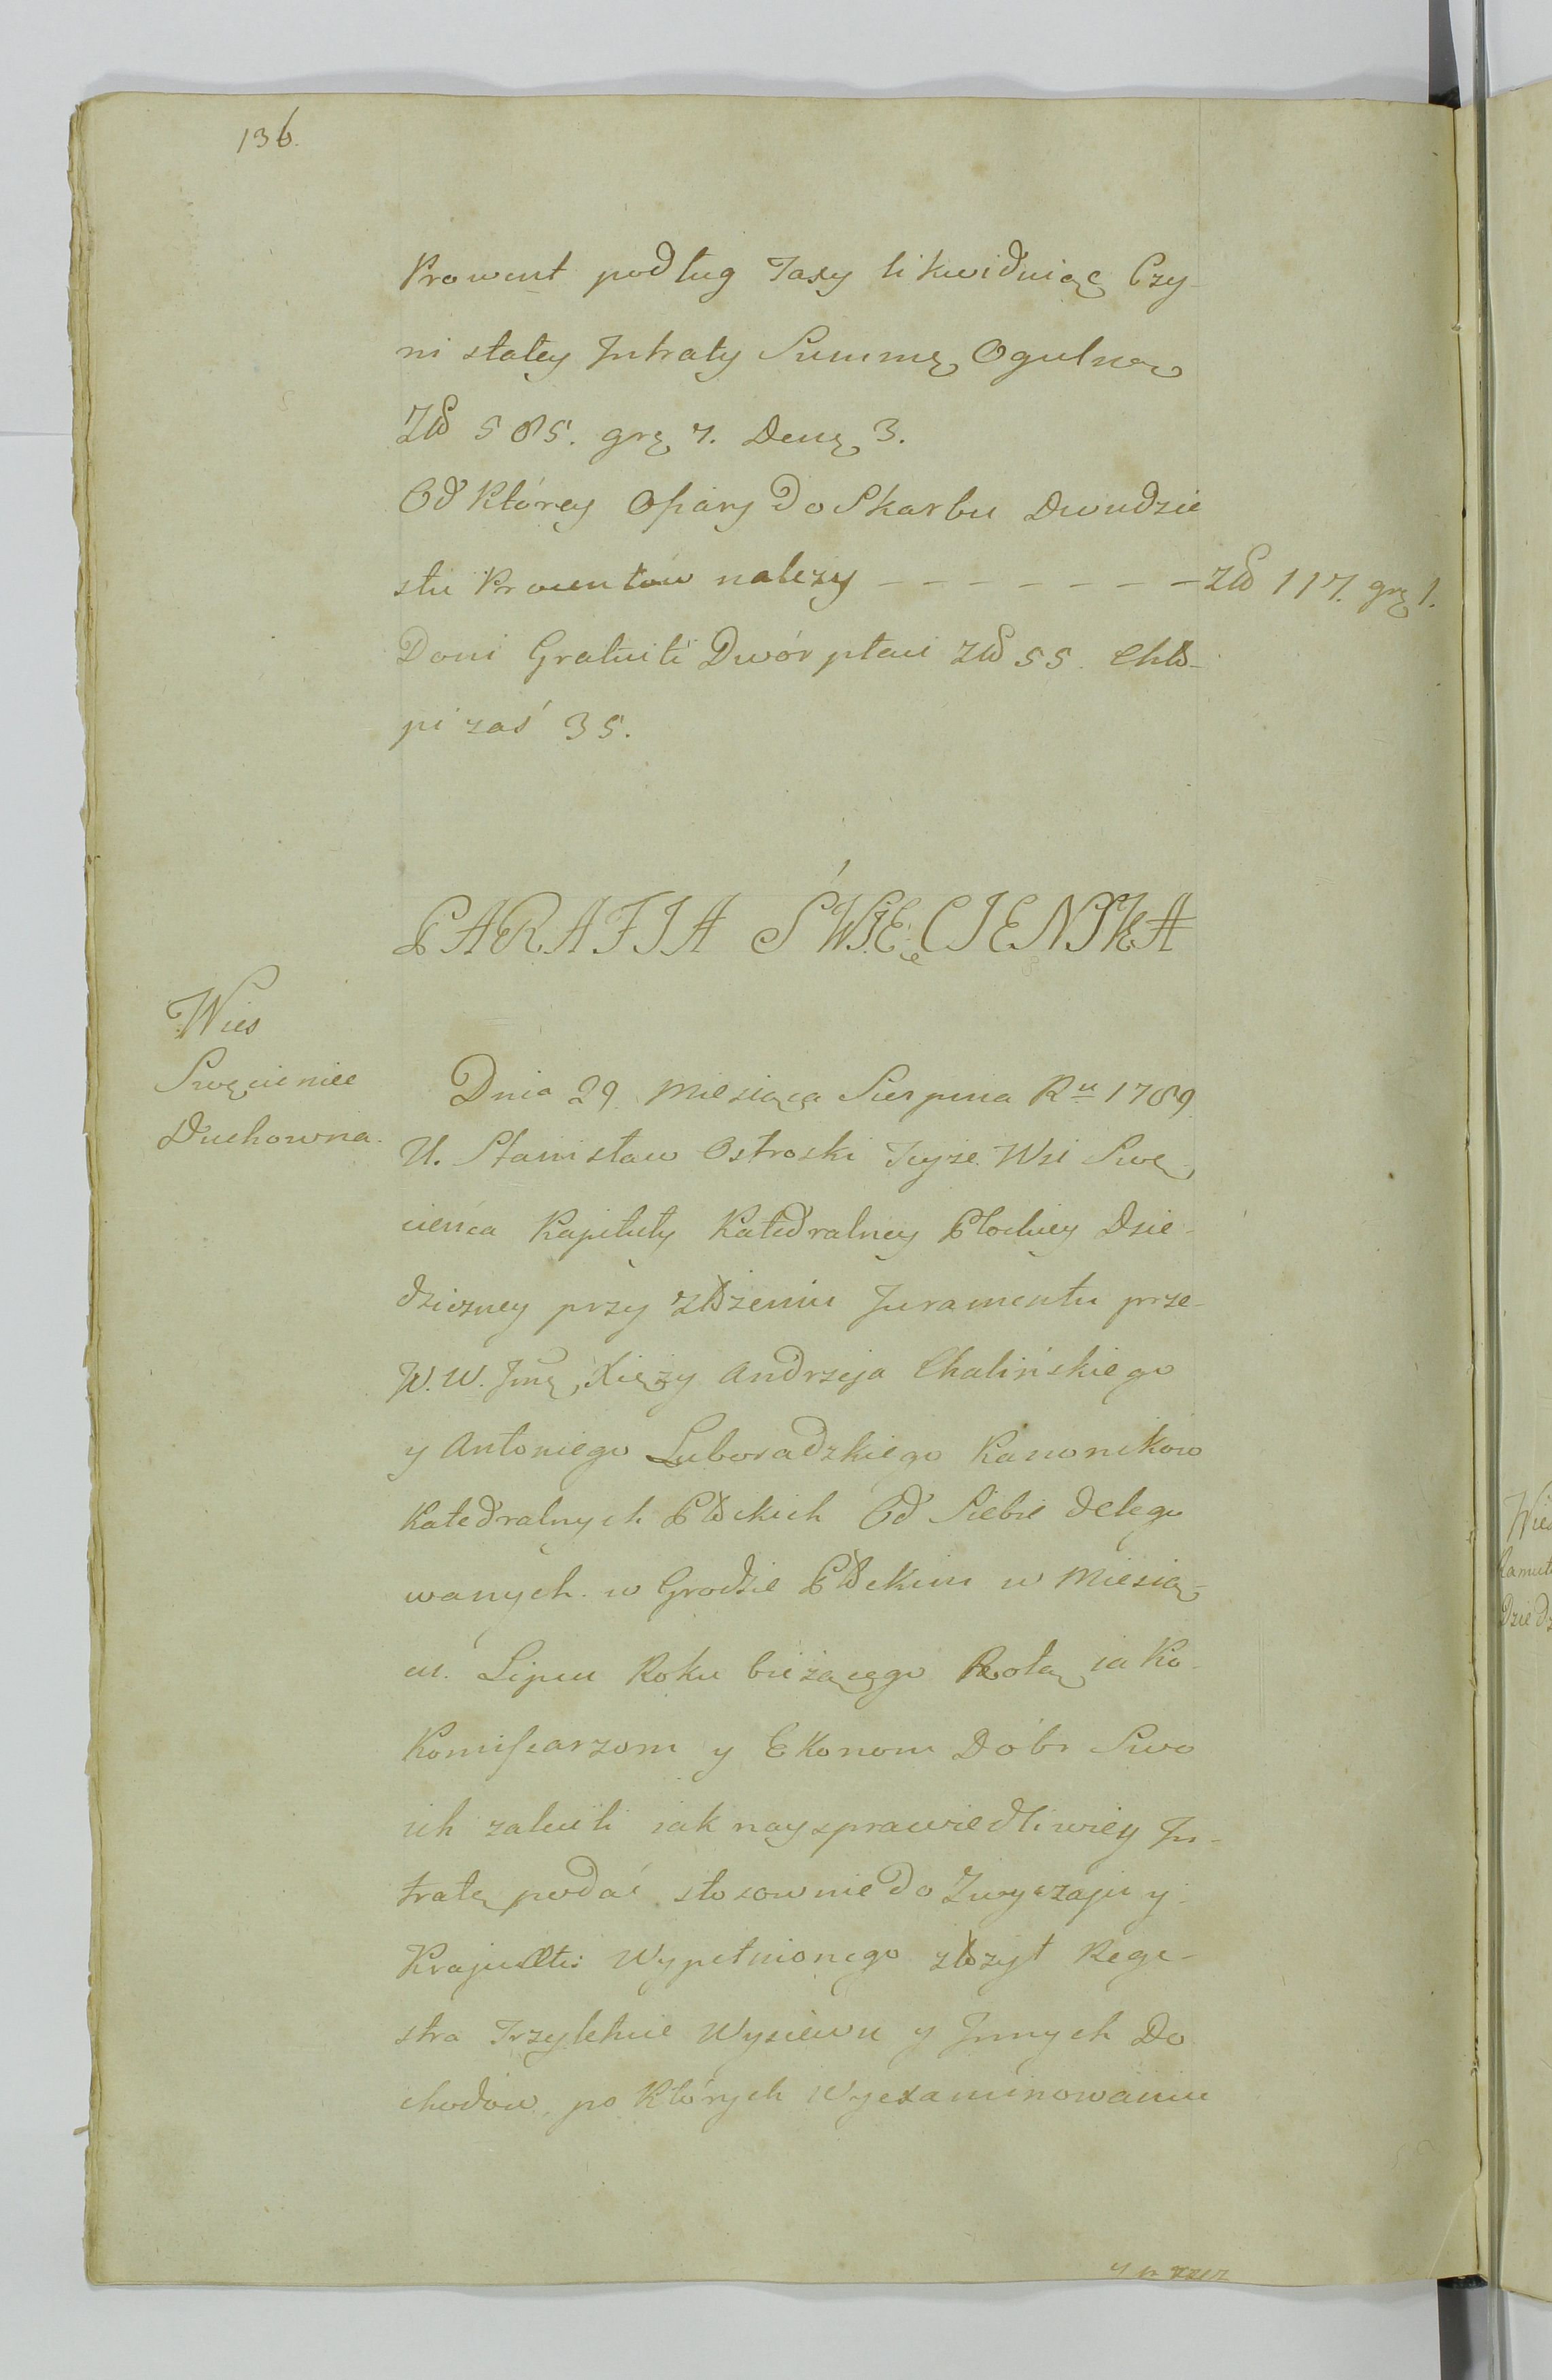 136.
Prowent podług Taxy likwiduiąc Czy-
ni stałey Intraty Summę Ogulną
Zło 585. grę 7. Denę 3.
Od Którey Ofiary Do Skarbu Dwudzie
stu Procentow nalezy - - - - - - - zło 117. grę 1.
Doni Gratuiti Dwór płaci zło 55. Chło-
pi zaś 35.
PARAFIA ŚWIĘCIENSKA
Wies
Swięcieniec
Duchowna.
Dnia 29 Miesiąca Sierpnia Ru 1789
U. Stanisław Ostroski Teyże Wsi Swę
cieńca Kapituły Katedralney Płockiey Dzie-
dziczney przy złożeniu Juramentu prze-
W. W. Jmę Xięży Andrzeja Chalińskiego
y Antoniego Luboradzkiego Kanonikow
Katedralnych Płockich Od Siebie delego
wanych w Grodzie Płockim w Miesią-
cu Lipcu Roku bieżącego Rotą iako
Komissarzom y Ekonom Dóbr Swo
ich zalecili iak naysprawiedliwiey In-
tratę podać stosownie Do Zwyczaju y
Kraju Wypełnionego złożył Rege-
stra Trzyletnie Wysiewu y Innych Do
chodow, po Których Wyexaminowaniu